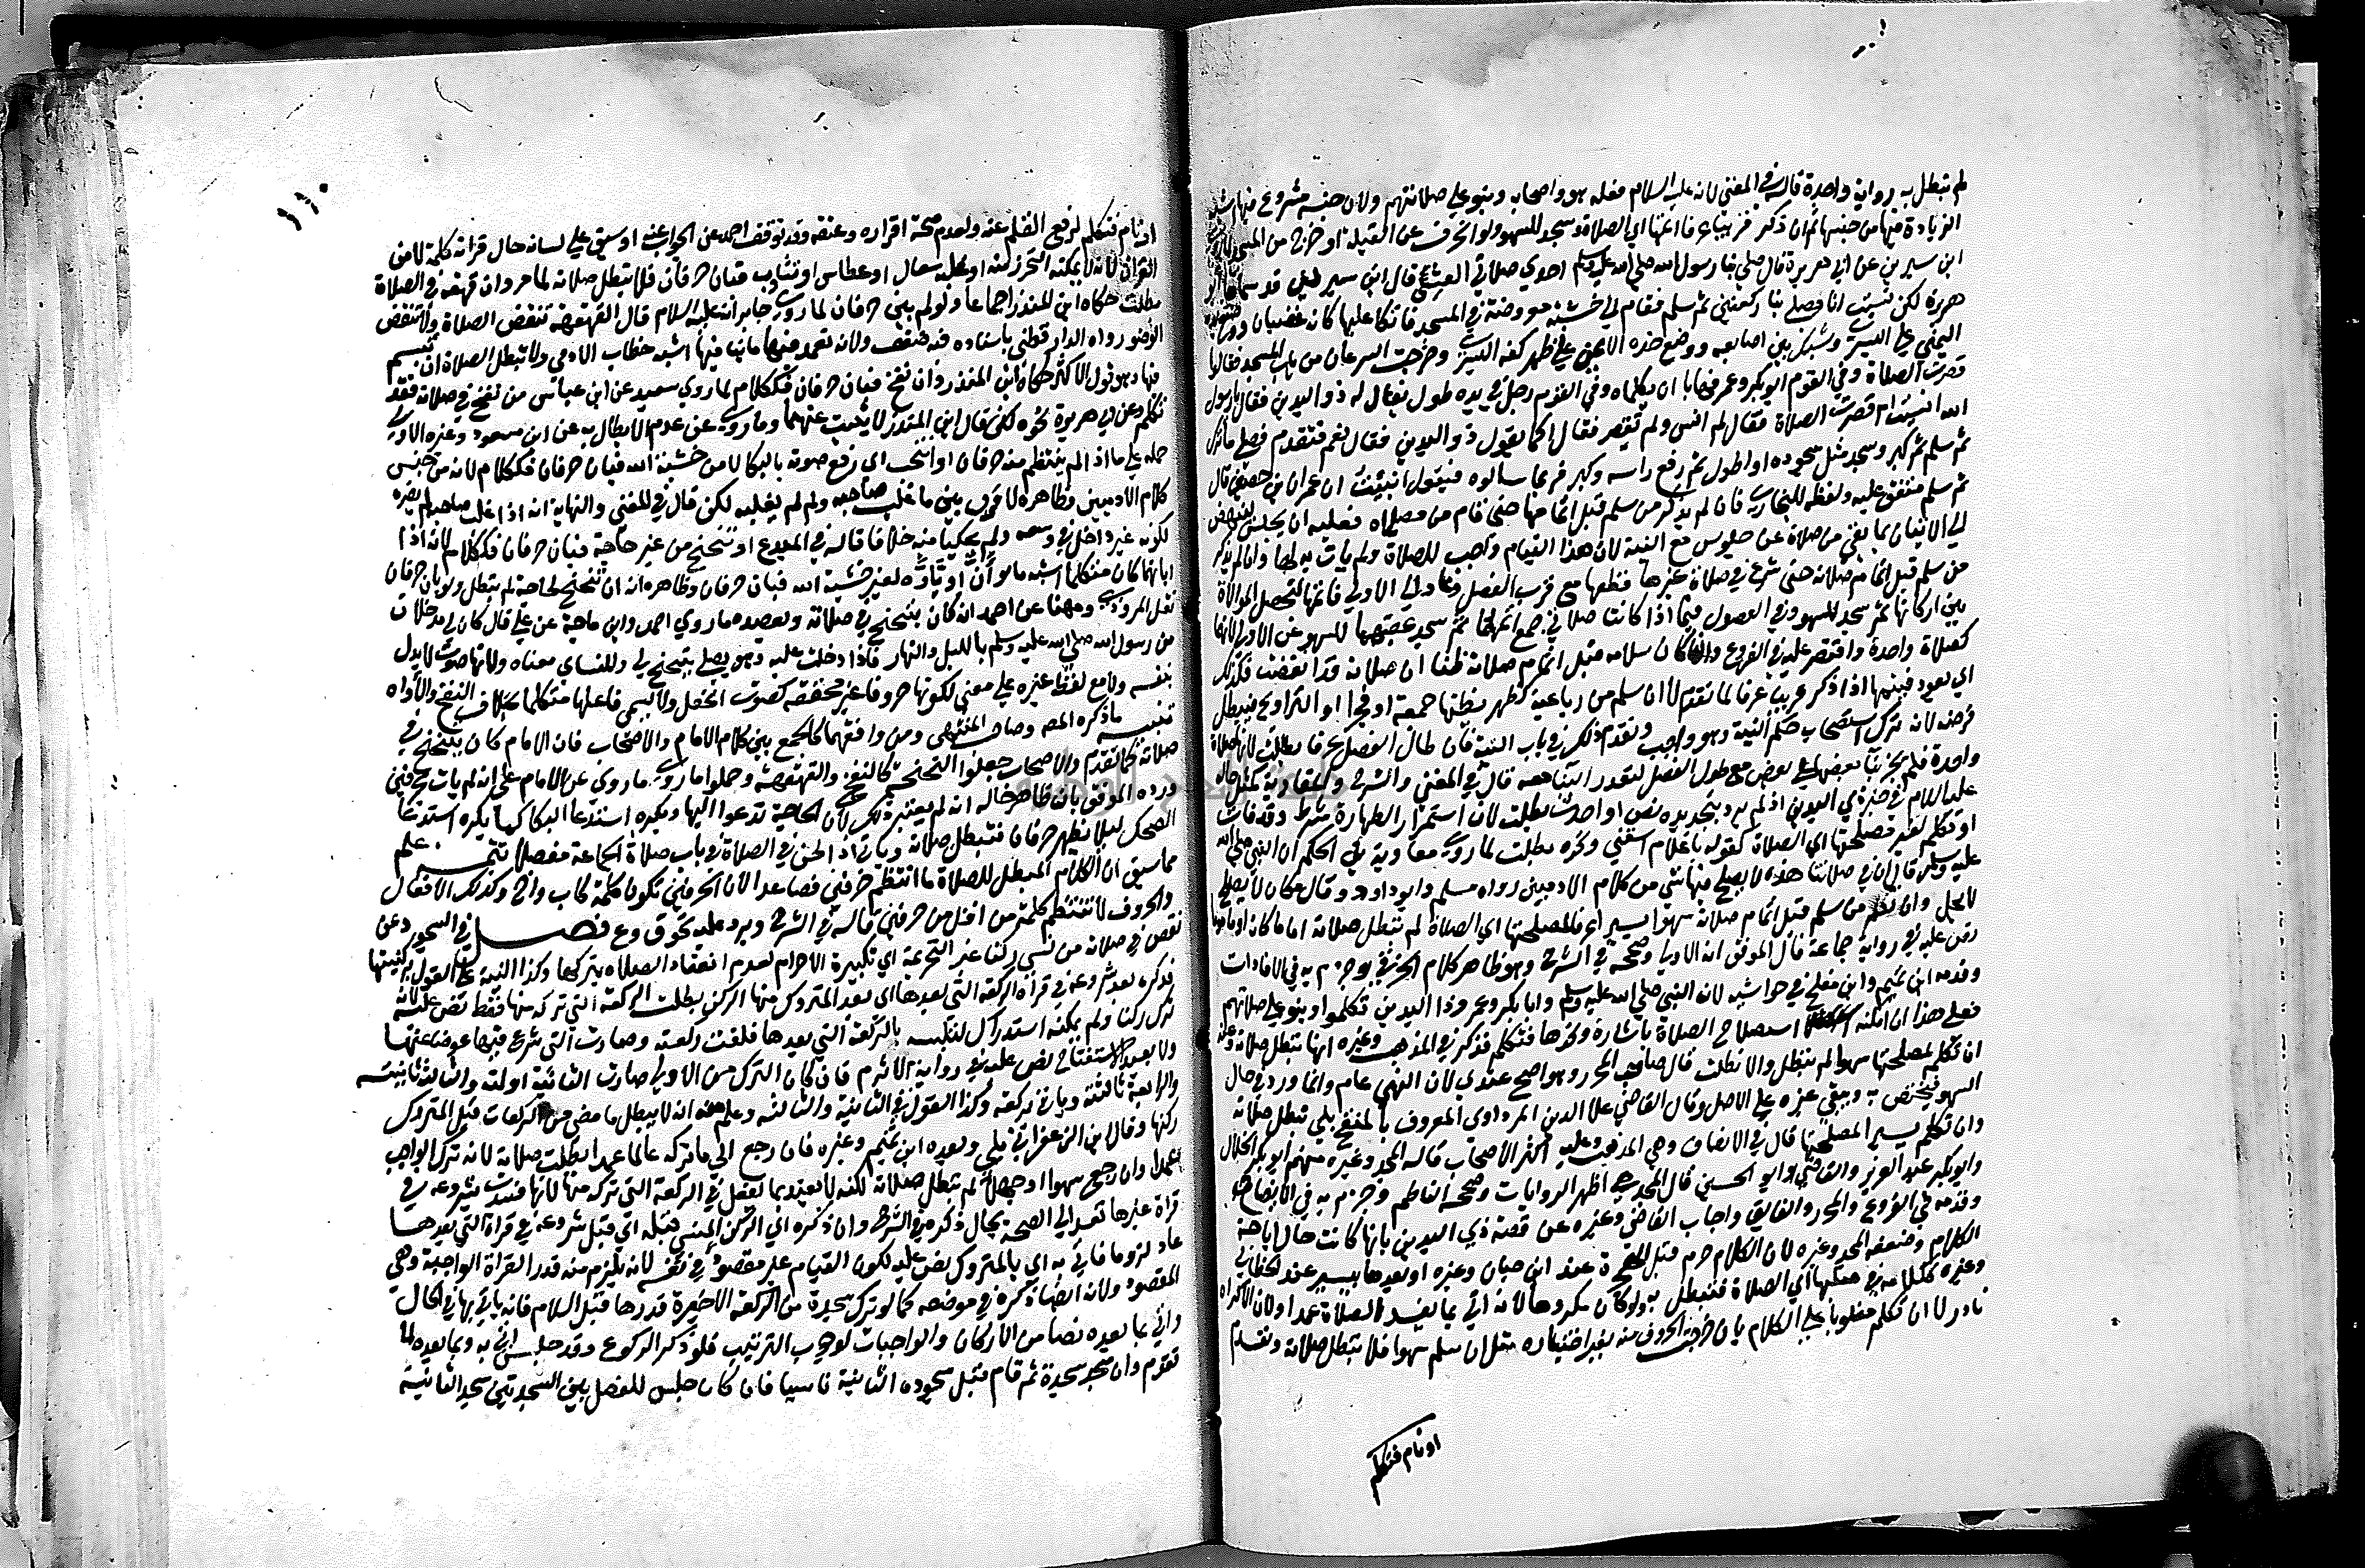 لم تبطل به رواية واحدة قاله في المغني لانه عليه السلام فعله هو واصحابه وبنو علي صلاتهم ولان جنسه مشروع فيها اشبه
الزيادة فيها من جنسها ثم ان ذكر قريبا عرفا اتمها اي الصلاة وسجد للسهو ولو انحرف عن القبلة او خرج من المسجد
ابن سيرين عن ابي هريرة قال صلي بنا رسول الله صلي الله عليه وسلم احدي صلاتي العشي قال ابن سيرين قد سماها ابو
هريرة لكن نسيت انا فصلي بنا ركعتين ثم سلم فقام الي خشبة معروضة في المسجد فاتكا عليها كانه غضبان ووضع يده
اليمني علي اليسري وشبك بين اصابعه ووضع خده الايمن علي ظهر كفه اليسري وخرجت السرعان من باب المسجد فقالوا
قصرت الصلاة وفي القوم ابو بكر وعمر فهابا ان يكلماه وفي القوم رجل في يده طول يقال له ذو اليدين فقال يا رسول
الله انسيت ام قصرت الصلاة فقال لم انس ولم تقصر فقال اكما يقول ذو اليدين فقال نعم فتقدم فصلي ما ترك
ثم سلم ثم كبر وسجد مثل سجوده او اطول ثم رفع راسه وكبر فربما سالوه فيقول انبئت ان عمران بن حصين قال
ثم سلم متفق عليه ولفظه للبخاري فان لم يذكر من سلم قبل اتمامها حتي قام من مصلاه فعليه ان يجلس لينهض
الي الاتيان بما بقي من صلاة عن جلوس مع النية لان هذا القيام واجب للصلاة ولم يات به لها وان لم يذكر
من سلم قبل اتمام صلاته حتي شرع في صلاة غيرها قطعها مع قرب الفصل وعاد الي الاولي فاتمها لتحصل الموالاة
بين اركانها ثم سجد للسهو وفي الفصول فيما اذا كانت صلاتي جمع اتمها ثم سجد عقبها للسهو عن الاولي لانهما
كصلاة واحدة واقتصر عليه في الفروع وان كان سلامه قبل اتمام صلاته ظنا ان صلاته قد انقضت فكذلك
اي يعود فيتمها اذا ذكر قريبا عرفا لما تقدم لا ان سلم من رباعية كظهر يظنها جمعة او فجرا او التراويح فيبطل
فرضه لانه ترك استصحاب حكم النية وهو واجب وتقدم ذلك في باب النية فان طال الفصل عرفا بطلت لانها صلاة
واحدة فلم يجز بنا بعضها علي بعض مع طول الفصل لتعذر البنا معه قال في المغني والشرح والمقاربة كمثل حاله
عليه السلام في خبر ذي اليدين اذ لم يرد بتحديده نص او احدث بطلت لان استمرار الطهارة شرط وقد فات
او تكلم لغير مصلحتها اي الصلاة كقوله يا غلام اسقني ونحوه بطلت لما روي معاوية بن الحكم ان النبي صلي الله
عليه وسلم قال ان صلاتنا هذه لا يصلح فيها شي من كلام الادميين رواه مسلم وابو داود وقال مكان لا يصلح
لا يحل وان تكلم من سلم قبل اتمام صلاته سهوا يسيرا عرفا لمصلحتها اي الصلاة لم تبطل صلاته اماما كان او ماموما
نص عليه في رواية جماعة قال الموفق انه الاولي وصححه في الشرح وهو ظاهر كلام الخرقي وجزم به في الافادات
وقدمه ابن تميم وابن مفلح في حواشيه لان النبي صلي الله عليه وسلم وابا بكر وعمر وذا اليدين تكلموا وبنو علي صلاتهم
فعلي هذا ان امكنه استصلاح الصلاة باشارة ونحوها فتكلم فذكر في المذهب وغيره انها تبطل صلاته وعنه
ان تكلم لمصلحتها سهوا لم تبطل والا بطلت قال صاحب المحرر وهو اصح عندي لان النهي عام وانما ورد في حال
السهو فيختص به ويبقي غيره علي الاصل وقال القاضي علا الدين المرداوي المعروف بالمنقح بلي تبطل صلاته
وان تكلم يسيرا لمصلحتها قال في الانصاف وهي المذهب وعليه اكثر الاصحاب قاله المجد وغيره منهم ابو بكر الخلال
وابو بكر عبد العزيز والقاضي وابو الحسين قال المجد هي اظهر الروايات وصححه الناظم وجزم به في الايضاح
وقدمه في الفروع والمحرر والفايق واجاب القاضي وغيره عن قصة ذي اليدين بانها كانت حال اباحة
الكلام وضعفه المجد وغيره لان الكلام حرم قبل الهجرة عند ابن حبان وغيره او بعدها بيسير عند الخطابي
وغيره ككلامه في صلبها اي الصلاة فتبطل به ولو كان مكرها لانه اتي بما يفسد الصلاة عمدا ولان الاكراه
نادر لا ان تكلم مغلوبا علي الكلام بان خرجت الحروف منه بغير اختياره مثل ان سلم سهوا فلا تبطل صلاته وتقدم
او نام فتكلم
١١٠
او نام فتكلم لرفع القلم عنه ولعدم صحة اقراره وعتقه وقد توقف احمد عن الجواب عنه او سبق علي لسانه حال قراءته كلمة لا من
القران لانه لا يمكنه التحرز منه او غلبه سعال او عطاس او تثاوب فبان حرفان فلا تبطل صلاته لما مر وان قهقه في الصلاة
بطلت حكاه ابن المنذر اجماعا ولو لم يبن حرفان لما روي جابر انه عليه السلام قال القهقهة تنقض الصلاة ولا تنقض
الوضو رواه الدارقطني باسناده فيه ضعف ولانه تعمد فيها ما ينافيها اشبه خطاب الادمي ولا تبطل الصلاة ان تبسم
فيها وهو قول الاكثر حكاه ابن المنذر وان نفخ فبان حرفان فككلام لما روي سعيد عن ابن عباس من نفخ في صلاته فقد
تكلم وعن ابي هريرة نحوه لكن قال ابن المنذر لا يثبت عنهما وما روي عن عدم الابطال به عن ابن مسعود وغيره الاولي
حمله علي ما اذا لم ينتظم منه حرفان او انتحب اي رفع صوته بالبكا لا من خشية الله فبان حرفان فككلام لانه من جنس
كلام الادميين وظاهره لا فرق بين ما غلب صاحبه وما لم يغلبه لكن قال في المغني والنهاية انه اذا غلب صاحبه لم يضره
لكونه غير داخل في وسعه ولم يحكيا فيه خلافا قاله في المبدع او تنحنح من غير حاجة فبان حرفان فككلام لانه اذا
ابانهما كان متكلما اشبه ما لو أنّ او تاوه لغير خشية الله فبان حرفان وظاهره انه ان تنحنح لحاجة لم تبطل ولو بان حرفان
نقل المروذي ومهنا عن احمد انه كان يتنحنح في صلاته ويعضده ما روي احمد وابن ماجة عن علي قال كان لي مدخلان
من رسول الله صلي الله عليه وسلم بالليل والنهار فاذا دخلت عليه وهو يصلي يتنحنح لي وللنساي معناه ولانها صوت لا يدل
بنفسه ولا مع لفظ غيره علي معني لكونها حروفا غير محققة كصوت الخفل ولا يسمي فاعلها متكلما بخلاف النفخ والتاوه
تنبيه ما ذكره المصـ وصاحب المنتهي ومن وافقهما كالجمع بين كلام الامام والاصحاب فان الامام كان يتنحنح في
صلاته كما تقدم والاصحاب جعلوا النحنحة كالنفخ والقهقهة وحملوا ما روي عن الامام علي انه لم يات بحرفين
ورده الموفق بان ظاهر حاله انه لم يعتبر ذلك لان الحاجة تدعوا اليها ويكره استدعا البكا كما يكره استدعا
الضحك ليلا يظهر حرفان فتبطل صلاته وياتي اذا لحن في الصلاة في باب صلاة الجماعة مفصلا تتمـــــة علم
مما سبق ان الكلام المبطل للصلاة ما انتظم حرفين فصاعدا لان الحرفين تكونان كلمة كاب واخ وكذلك الافعال
والحروف لا تنتظم كلمة من اقل من حرفين قاله في الشرح ويرد عليه نحو ق وع فصـــــل في السجود عن
نقص في صلاته من نسي ركنا غير التحريمة اي تكبيرة الاحرام لعدم انعقاد الصلاة بتركها وكذا النية علي القول بركنيتها
فذكره بعد شروعه في قراة الركعة التي بعدها اي بعد المتروك منها الركن بطلت الركعة التي تركه منها فقط نص عليه لانه
ترك ركنا ولم يمكنه استدراكه لتلبسه بالركعة التي بعدها فلغت ركعته وصارت التي شرع فيها عوضا عنها
ولا يعيد الاستفتاح نص عليه في رواية الاثرم فان كان الترك من الاولي صارت الثانية اولته والثالثة ثانيته
والرابعة ثالثته وياتي بركعة وكذا القول في الثانية والثالثة وعلم منه انه لا يبطل ما مضي من الركعات قبل المتروك
ركنها وقال ابن الزاغوني بلي وبعده ابن تميم وغيره فان رجع الي ما تركه عالما عمدا بطلت صلاته لانه ترك الواجب
عمدا وان رجع سهوا او جهلا لم تبطل صلاته لكنه لا يعتد بما يفعل في الركعة التي تركه منها لانها فسدت بشروعه في
قراة غيرها تعد الي الصحة بحال ذكره في الشرح وان ذكره اي الركن المنسي قبله اي قبل شروعه في قراة التي بعدها
عاد لزوما فاتي به اي بالمتروك نص عليه لكون القيام غير مقصود في نفسه لانه يلزم منه قدر القراة الواجبة وهي
المقصود ولانه ايضا ذكره في موضعه كما لو ترك سجدة من الركعة الاخيرة قدرها قبل السلام فانه ياتي بها في الحال
واتي بما بعده نصا من الاركان والواجبات لوجوب الترتيب فلو ذكر الركوع وقد جلس اتي به وبما بعده لما
تقدم وان سجد سجدة ثم قام قبل سجوده الثانية ناسيا فان كان جلس للفصل بين السجدتين سجد الثانية